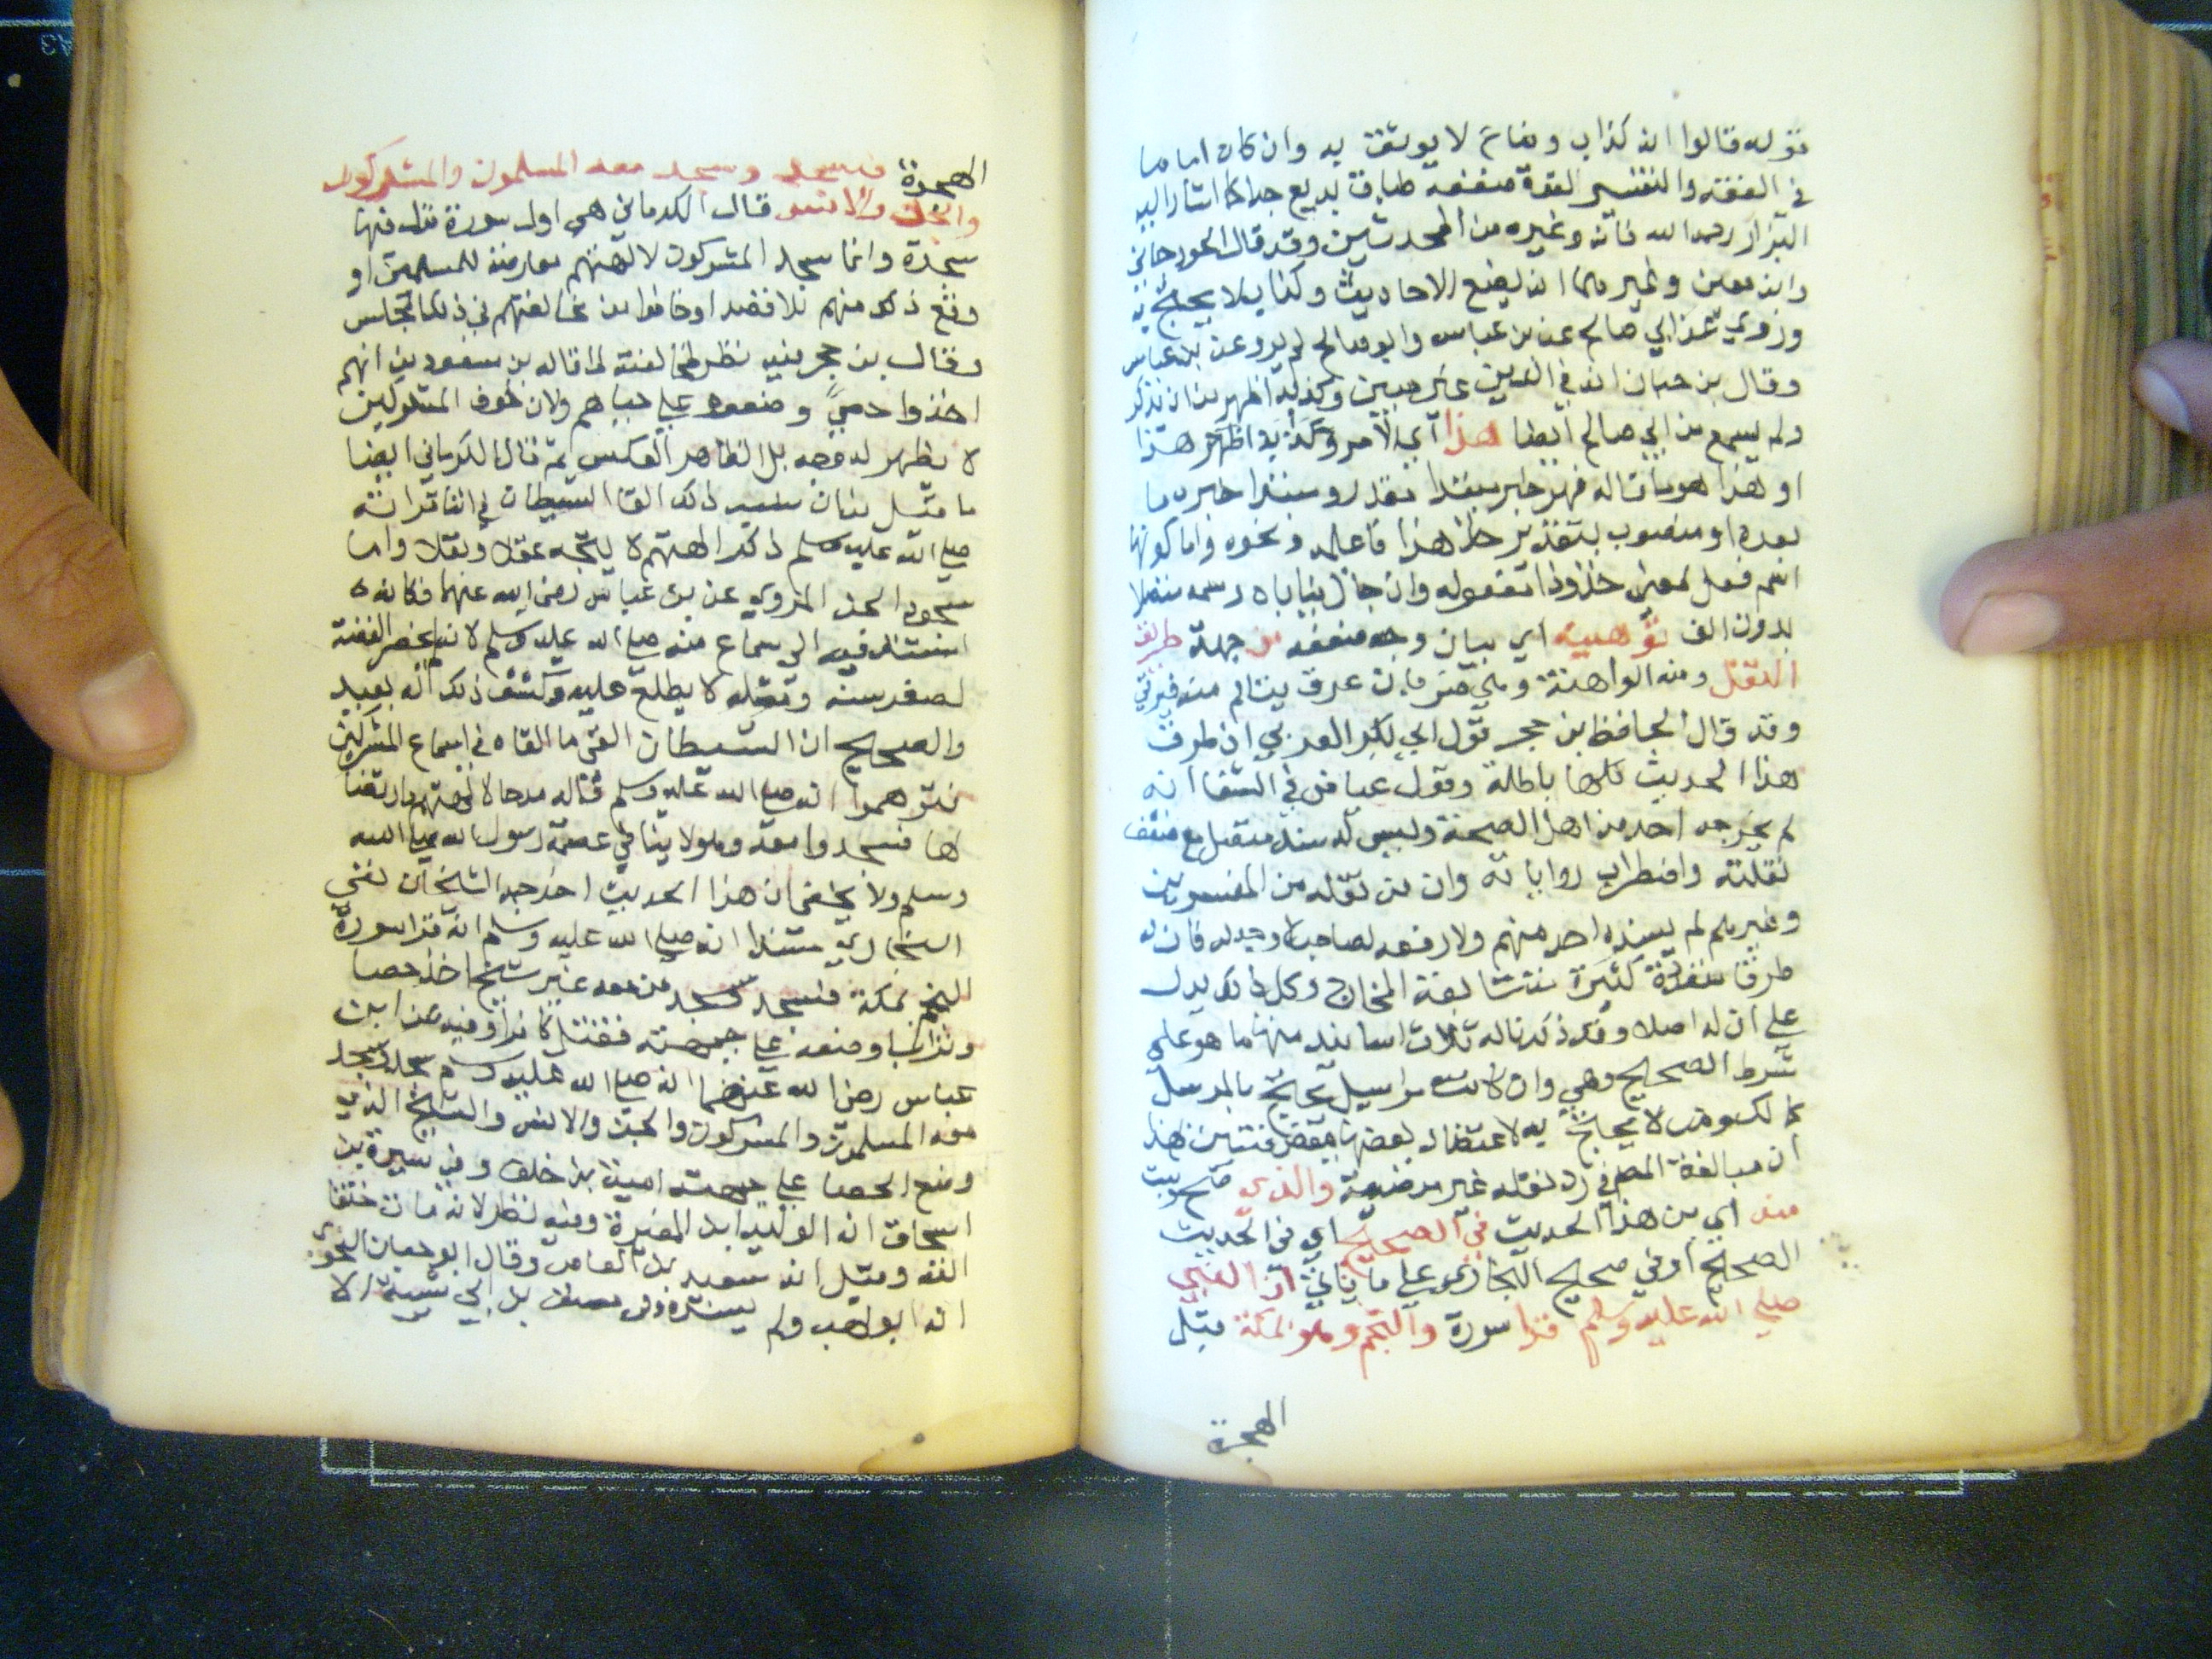 قوله قالوا انه كذاب وضاع لا يوثق به وان كان اماما
في الفقه والتفسير لقوة ضعفه طباق بديع جدا كما اشار اليه
البزار رحمه الله فانه وغيره من المحدثين وقد قال الجوزجاني
وابن معين وغيرهما انه يضع الاحاديث وكذا لا يحتج به
وروي عن ابي صالح عن بن عباس وابو صالح لم يرو عن بن عباس
وقال بن حبان انه في الدين غير مبين وكذبه اظهر من ان يذكر
ولم يسمع من ابي صالح ايضا هذا اي الامر وكذبه اظهر هذا
او هذا هو ما قاله فهو خبر مبتدا مقدر او مبتدا خبره ما
بعده او منصوب بتقدير خذ هذا فاعلمه ونحوه واما كونها
اسم فعل لمعنى خذ وذا مفعوله وان جاز يأباه رسمه متصلا
بدون الف توهينه اي بيان وجه ضعفه من جهة طريق
النقل ومنه الواهنة وهي عرق يتالم منه فيرقي
وقد قال الحافظ بن حجر قول ابي بكر العربي ان طرق
هذا الحديث كلها باطلة وقول عياض في الشفا انه
لم يخرجه احد من اهل الصحة وليس له سند متصل مع ضعف
نقلته واضطراب رواياته وان من نقله من المفسرين
وغيرهم لم يسنده احد منهم ولا رفعه لصاحب لا وجه له فان له
طرقا متعددة كثيرة متباينة المخارج وكل ذلك يدل
على ان له اصلا وقد ذكرنا له ثلاث اسانيد منها ما هو على
شرط الصحيح وهي وان كانت مراسيل يحتج بالمرسل
كما لك ومن لا يحتج به لاعتضاد بعضها ببعض فتبين بهذا
ان مبالغة المص في رد نقله غير مرضية والذي صح وثبت
منه اي من هذا الحديث في الصحيح اي في الحديث
الصحيح او في صحيح البخاري على ما ياتي ان النبي
صلى الله عليه وسلم قرا سورة والنجم وهو بمكة قبل
الهجرة
الهجرة فسجد وسجد معه المسلمون والمشركون
والجن والانس قال الكرماني هي اول سورة نزل فيها
سجدة وانما سجد المشركون لالهتهم معارضة للمسلمين او
وقع ذلك منهم بلا قصد او خافوا من مخالفتهم في ذلك المجلس
وقال بن حجر فيه نظر لمخالفته لما قاله بن مسعود من انهم
اخذوا حصى وضعوه على جباههم ولان خوف المشركين
لا يظهر له وجه بل الظاهر العكس ثم قال الكرماني ايضا
ما قيل بان سبب ذلك القا الشيطان في اثنا قرائته
صلى الله عليه وسلم ذكر الهتهم لا يتجه عقلا ونقلا واما
سجود الجن المروي عن بن عباس رضي الله عنهما فكانه
استند فيه الى سماع منه صلى الله عليه وسلم لانه لم يحضر القصة
لصغر سنه ومثله لا يطلع عليه وكشف ذلك له بعيد
والصحيح ان الشيطان القى ما القاه في اسماع المشركين
فتوهموا انه صلى الله عليه وسلم قاله مدحا لالهتهم وارتضا
لها فسجدوا معه وهو لا ينافي عصمة رسول الله صلى الله
وسلم ولا يخفى ان هذا الحديث اخرجه الشيخان ففي
البخاري مسندا انه صلى الله عليه وسلم انه قرا سورة
النجم بمكة فسجد وسجد من معه غير شيخ اخذ حصا
وترابا وضعه على جبهته فقتل كافرا وفيه عن ابن
عباس رضي الله عنهما انه صلى الله عليه وسلم سجد وسجد
معه المسلمون والمشركون والجن والانس والشيخ الذي
وضع الحصا على جبهته امية بن خلف وفي سيرة بن
اسحاق انه الوليد ابن المغيرة وفيه نظر لانه مات حتفا
انفه وقيل انه سعيد بن العاص وقال ابو حيان النحوي
انه ابو لهب ولم يستنده وفي مصنف بن ابي شيبة الا